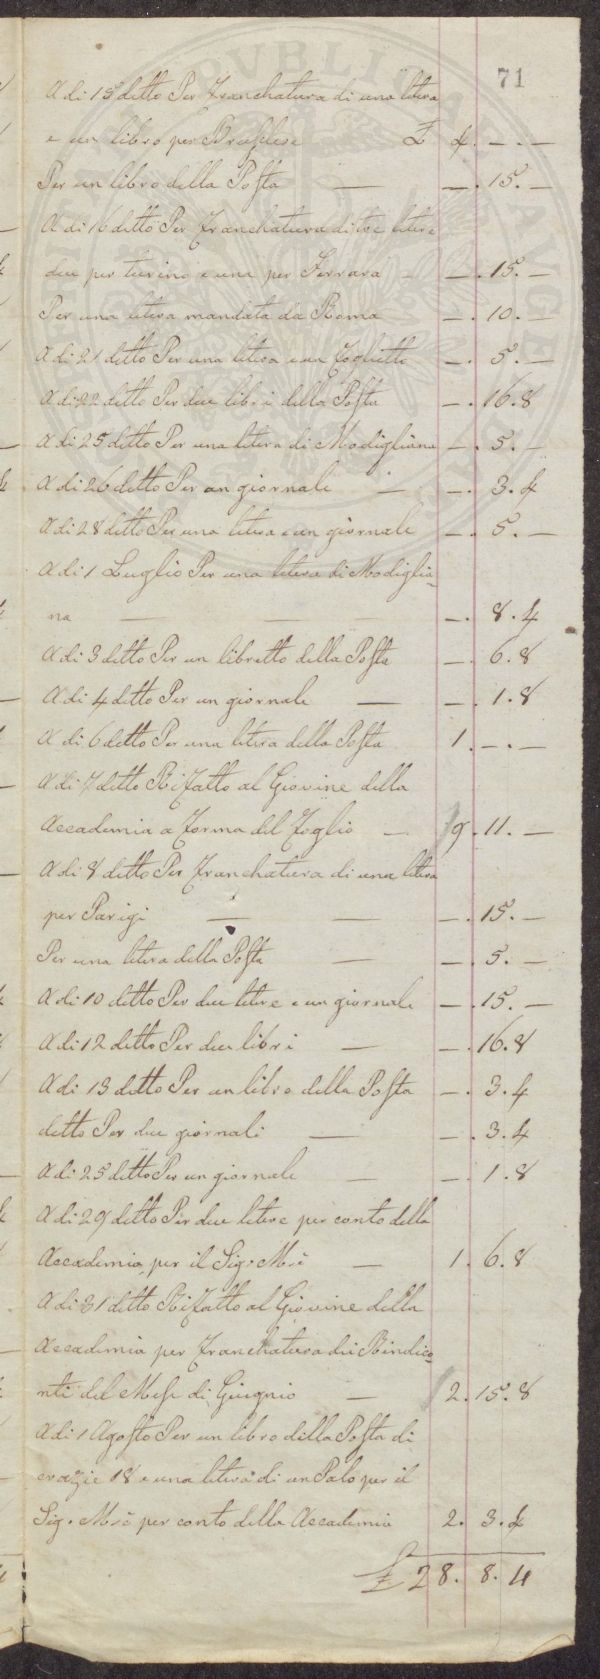 71
A di 15 detto Per franchatura di una litera
e un libro per Bruselese £ 4. – . –
Per un libro della Posta — — . 15. –
A di 16 detto Per franchatura di tre litere
due per turino e una per Ferrara – — . 15. –
Per una litera mandata da Roma — . 10. –
A di 21 detto Per una litera e un foglietto — . 5. –
A di 22 detto Per due libri della Posta — . 16. 8
A di 25 detto Per una litera di Modigliana — . 5. –
A di 26 detto Per un giornale — — . 3. 4
A di 28 detto Per una litera e un giornale — . 5. –
A di 1 Luglio Per una litera di Modiglia=
na — — — . 8. 4
A di 3 detto Per un libretto della Posta — . 6. 8
A di 4 detto Per un giornale — — . 1. 8
A di 6 detto Per una litera della Posta 1. – . –
A di 7 detto Rifatto al Giovine della
Accademia a forma del foglio — 9. 11. –
A di 8 detto Per franchatura di una litera
per Parigi — — — . 15. –
Per una litera della Posta — — . 5. –
A di 10 detto Per due litere e un giornale — . 15. –
A di 12 detto Per due libri — — . 16. 8
A di 13 detto Per un libro della Posta — . 3. 4
detto Per due giornali — — . 3. 4
A di 25 detto Per un giornale — — . 1. 8
A di 29 detto Per due litere per conto della
Accademia per il Sig: Mse — 1. 6. 8
A di 31 detto Rifatto al Giovine della
Accademia per franchatura dei Rindico=
nti del Mese di Giugnio — 2. 15. 8
A di 1 Agosto Per un libro della Posta di
crazie 18 e una litera di un Palo per il
Sig. Mse per conto della Accademia 2. 3. 4
£ 28. 8. 4